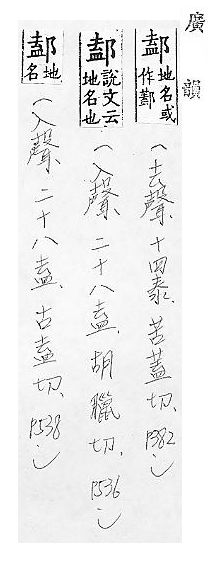 廣韻
地名或
作
（去聲、十四泰、苦蓋切、P382。）
說文云
地名也
（入聲、二十八盍、胡臘切、P536。）
地
名
（入聲、二十八盍、古盍切、P538。）